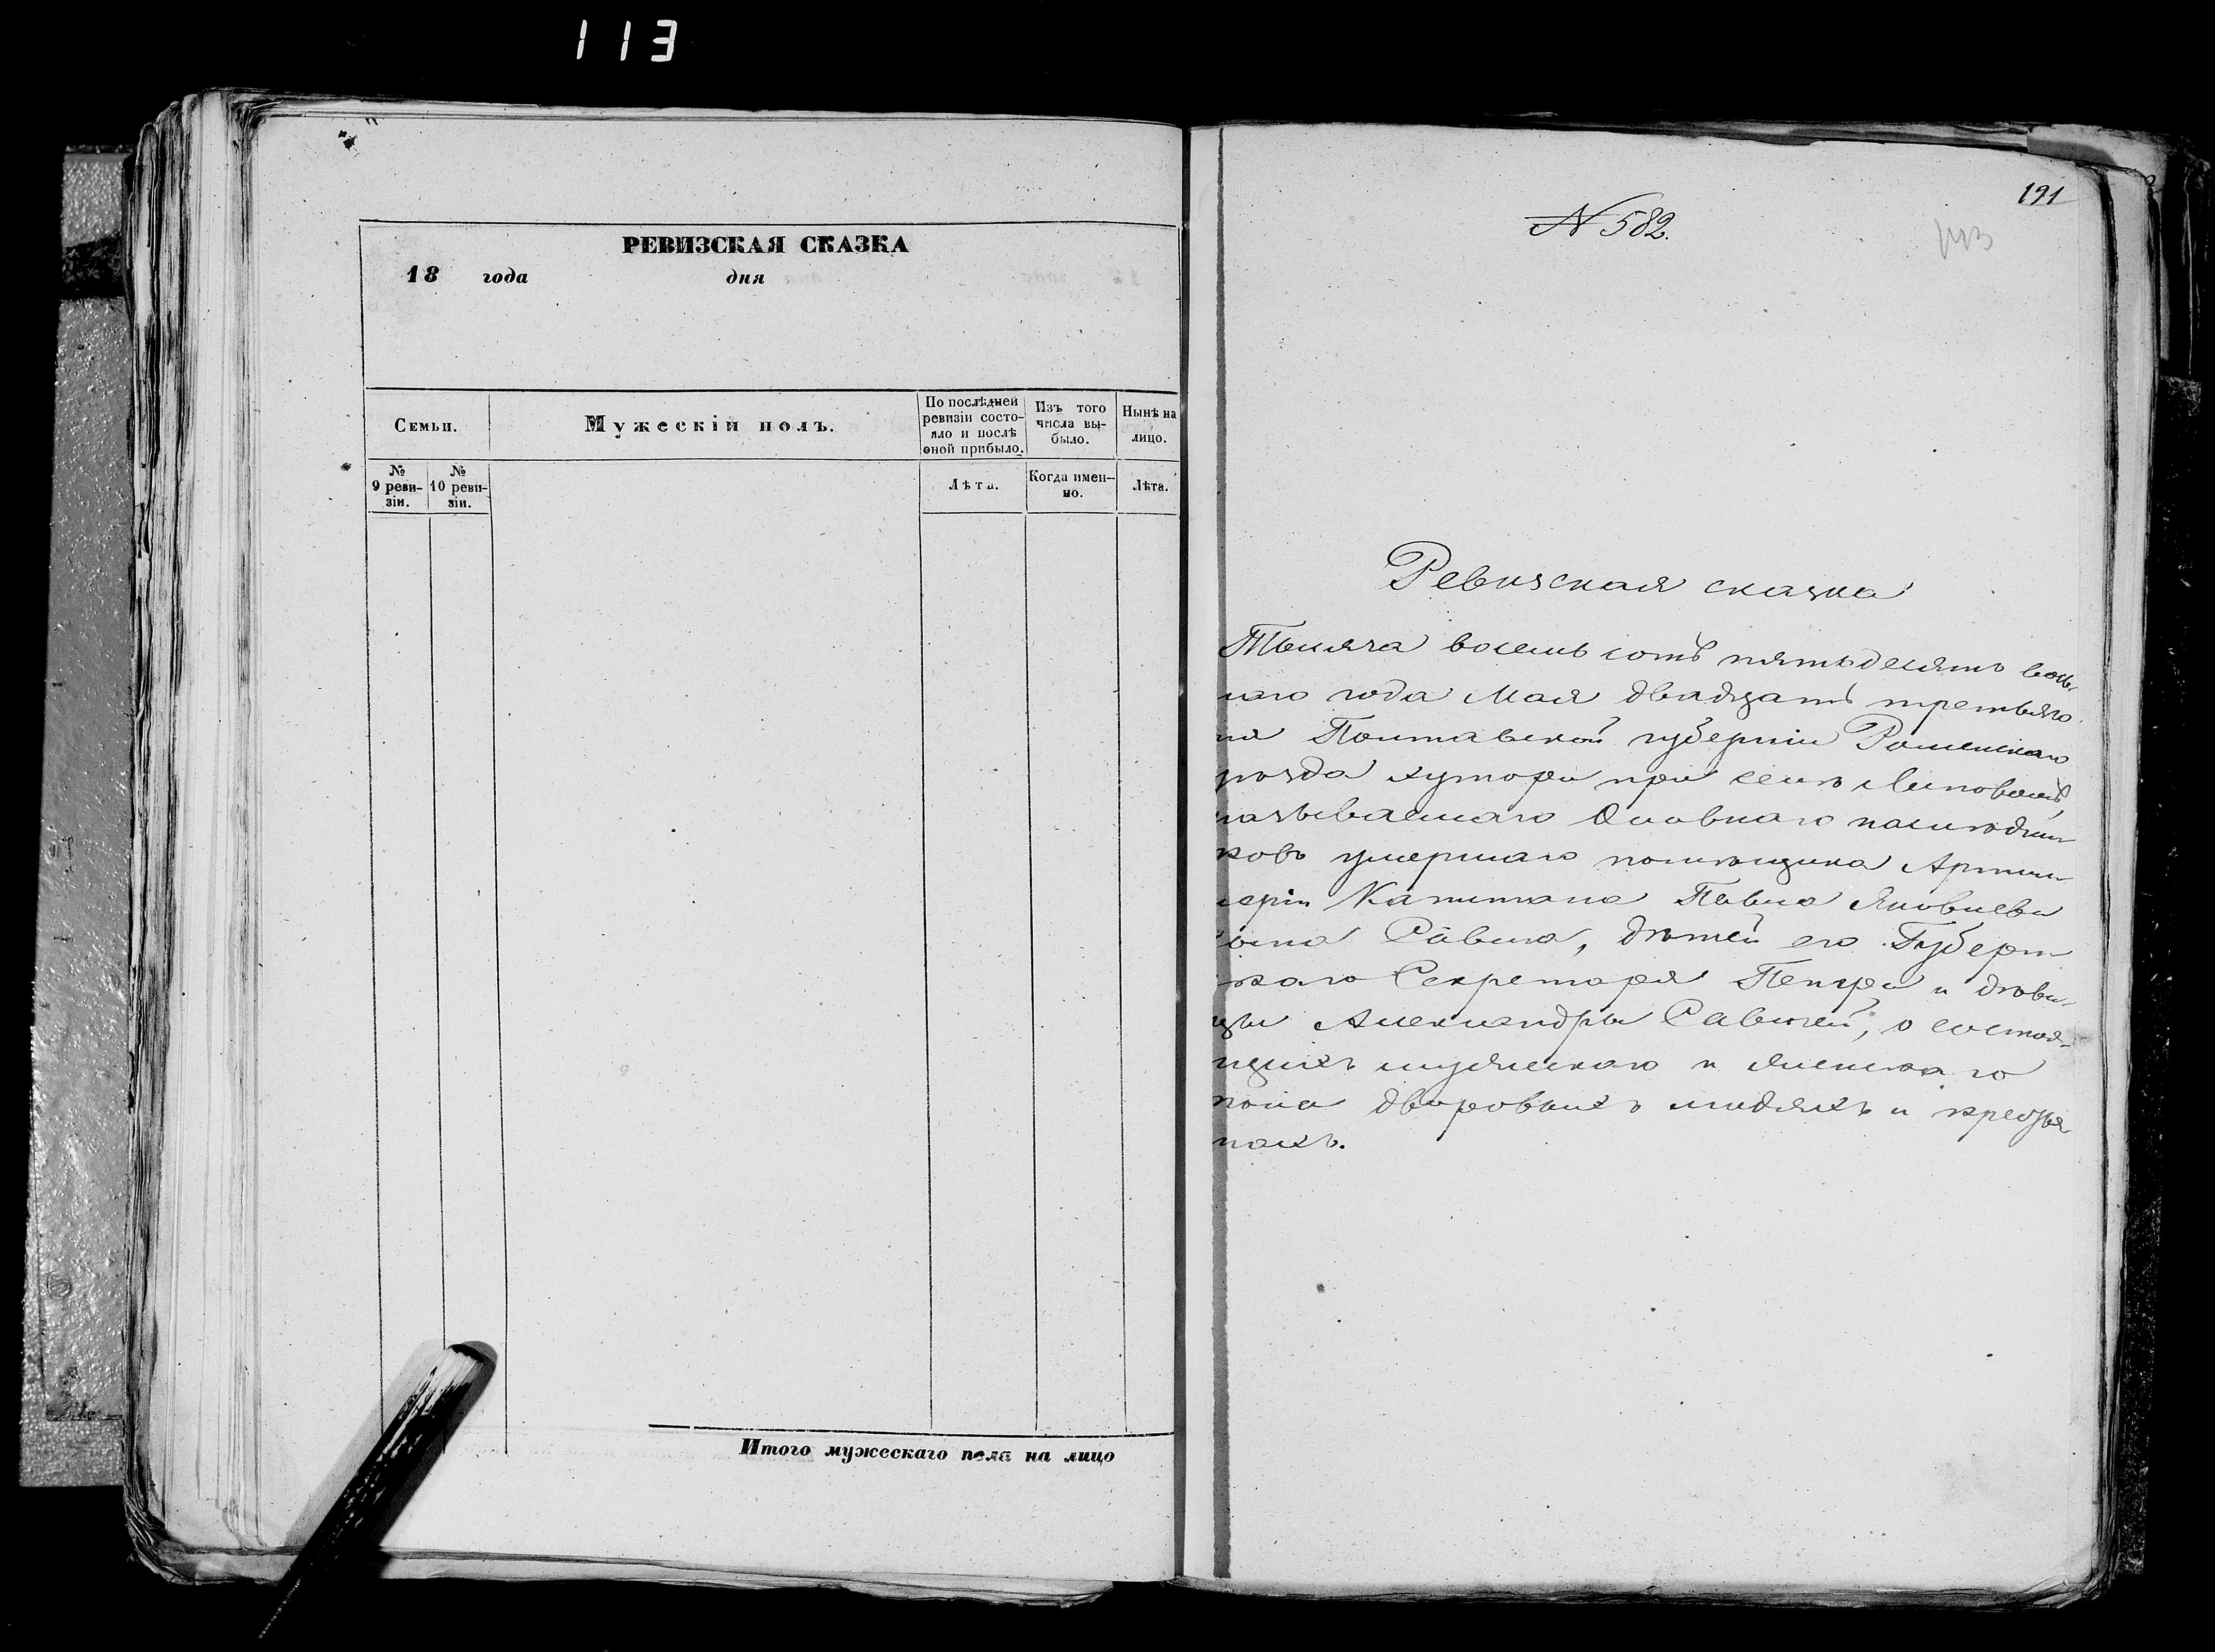 113
РЕВИЗСКАЯ СКАЗКА
18 года дня
Семьи.
Мужескій полъ.
По послѣдней ревизіи состо-
яло и послѣ
оной прибыло.
Изъ того
числа вы-
было.
Нынѣ на
лицо.
№
9 реви-
зіи.
№
10 реви-
зіи.
Лѣта.
Когда имен-
но.
Лѣта.
Итого мужескаго пола на лицо
191
№ 582.
Ревизская сказка
Тысяча восемь сотъ пятьдесятъ вось-
маго года Мая двадцать третьяго
ня Полтавской губерніи Роменскаго
уѣзда хутора при селѣ Липовомъ,
называемаго наслѣдни-
ковъ умершаго помѣщика Артил-
леріи Капитана Павла Яковлева
сына Савича, дѣтей его Губерн
скаго Секретаря Петра и дѣви-
цы Александры Савичей, о состоя-
щихъ мужескаго и женскаго
пола дворовыхъ людяхъ и крестья
нахъ.